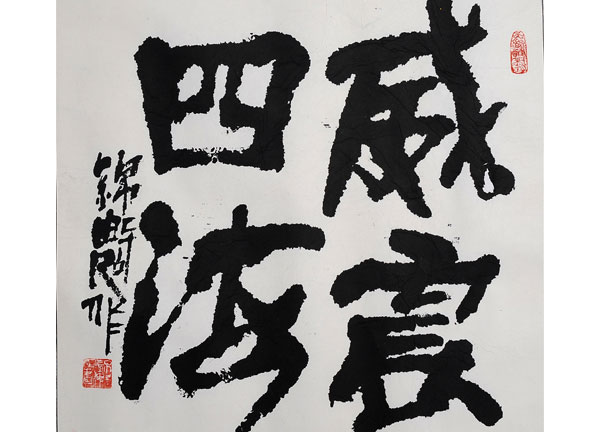 威震
四海
錦作